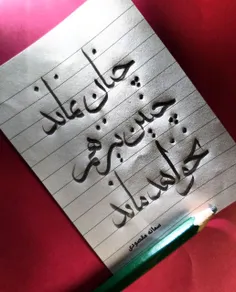 چنان نماند
چنین نیز هم
نخواهد ماند
سمانه مقصودی